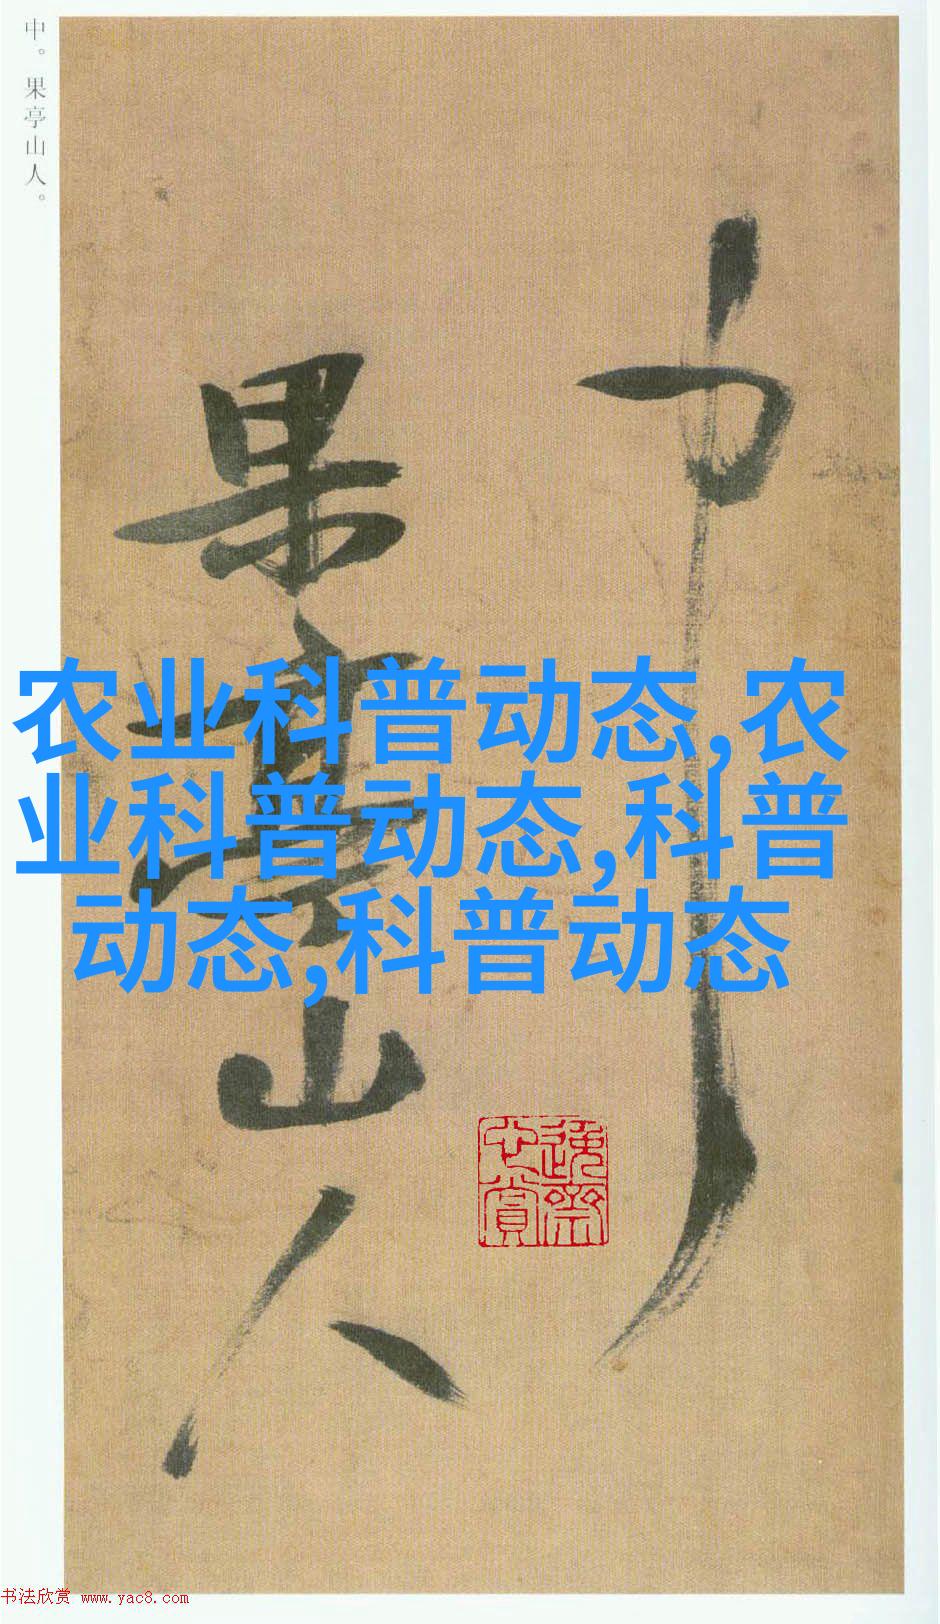 中。果亭山人。
中
果亭山人
农业科普动态,农
业科普动态,科普
动态,科普动态
逸斋
心赏
书法欣赏 www.yac8.com